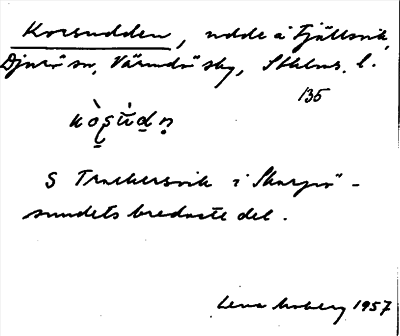 Korsudden, udde å Fjällsvik,
Djurö sn, Värmdö skg, Sthlms l.
135
S Trackersvik i Skarpö-
sundets bredaste del.
Lena Moberg 1957